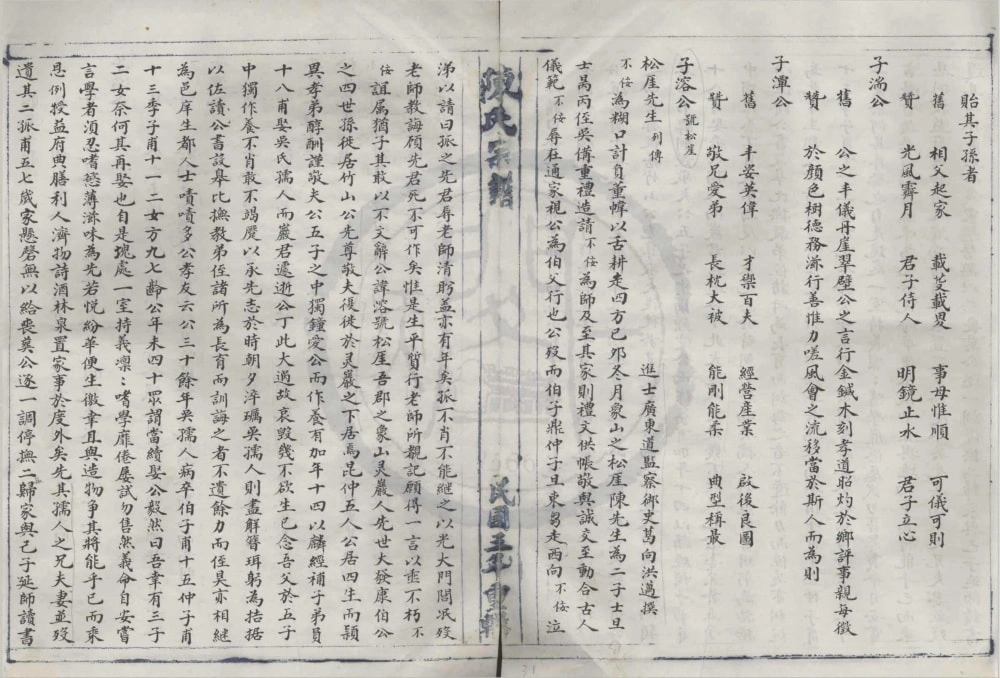 貽其子孫者
舊 相父起家 載芟載畀 事母惟順 可儀可則
贊 光風霽月 君子侍人 明鏡止水 君子立心
子湍公
舊 公之丰儀丹崖翠壁公之言行金鍼木刻孝道昭灼於鄉評事親每徵
贊 於顏色樹德務滋行善惟力嗟風會之流移當於斯人而為則
子潭公
舊 丰姿英偉 才樂百夫 經營産業 啟後良圖
贊 敬兄愛弟 長枕大被 能剛能柔 典型稱最
子溶公 號松崖
松崖先生 列傳 進士廣東道監察御史葛向洪邁撰
不佞為糊口計負重幃以舌耕走四方已夘冬月象山之松崖陳先生為二子士旦
士昺丙侄吳傋重禮造請不佞為師及至其家則禮文供帳敬與誠交至動合古人
儀範不佞辱在通家視公為伯父行也公歿而伯子鼎仲子旦東芻走西向不佞泣
陳氏宗譜
民國五年重脩
涕以請曰孤之先君辱老師清盻盖亦有年矣孤不肖不能継之以光大門閭泯歿
老師教誨顧先君死不可作矣惟是生平質行老師所覩記願得一言以垂不朽不
佞誼属猶子其敢以不文辭公諱溶號松崖吾郡之象山灵巖人先世大發康伯公
之四世孫徙居竹山公先尊敬夫後徙於灵巖之下居焉昆仲五人公居四生而穎
異孝弟醇酬謹敬夫公五子之中獨鐘愛公而作養有加年十四以麟經補子弟員
十八甫娶吳氏孺人而嚴君遽逝公丁此大過故哀毀幾不欲生已念吾父於五子
中獨作養不肖敢不竭蹷以承先志於時朝夕淬礪吳孺人則盡觧簪珥躬為拮据
以佐讀公書設皋比撫教弟侄諸所為長育而訓誨之者不遺餘力而侄是亦相継
為邑庠生都人士嘖嘖多公孝友云公三十餘年吳孺人病卒伯子甫十五仲子甫
十三季子甫十一二女方九七齡公年未四十眾謂當續娶公毅然曰吾幸有三子
二女奈何其再娶也自是塊處一室持義凛：嗜學靡倦屡試勿售然義命自安嘗
言學者湏忍嗜慾薄滋味為先若悅紛華便生徽幸且與造物争其將能乎已而乘
恩例授益府典膳利人濟物詩酒林泉置家事於度外矣先其孺人之兄夫妻並歿
遺其二孤甫五七歲家懸磬無以給喪莫公遂一調停撫二歸家與己子延師讀書